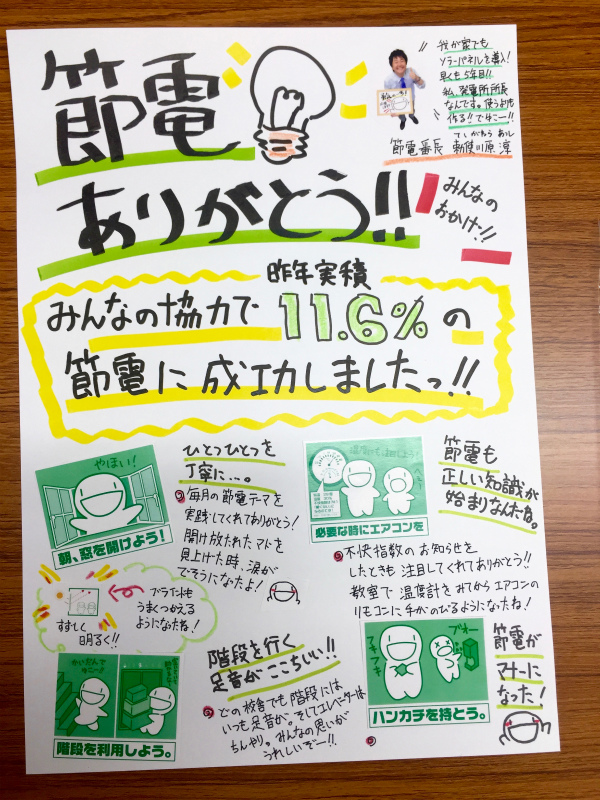 節電
ありがとう!!
みんなの
おかげ!!
我が家でも
ソーラーパネルを導入!
早くも5年目!!
私、発電所所長
なんです。使うよりも
作る!!でねー!!
節電番長 勅使川原 淳
昨年実績
みんなの協力で 11.6% の
節電に成功しましたっ!!
やほい!
朝、窓を開けよう!
ひとつひとつを
丁寧に…。
毎月の節電テーマを
実践してくれてありがとう!
開け放たれたマドを
見上げた時、涙が
でそうになったよ!
ブラインドも
うまくつかえる
ようになたね!
すずしく
明るく!!
必要な時にエアコンを
節電も
正しい知識が
始まりなんだね。
不快指数のお知らせを
したときも注目してくれてありがとう!!
教室で温度計をみてからエアコンの
リモコンに手がのびるようになたね!
かいだんで
階段を利用しよう。
階段を行く
足音がここちいい!!
どの校舎でも階段には
いつも足音が。そしてエレベーターは
ちんやり。みんなの思いが
うれしいぞー!!
フキフキ
ブオー
ハンカチを持とう。
節電が
マナーに
なった!